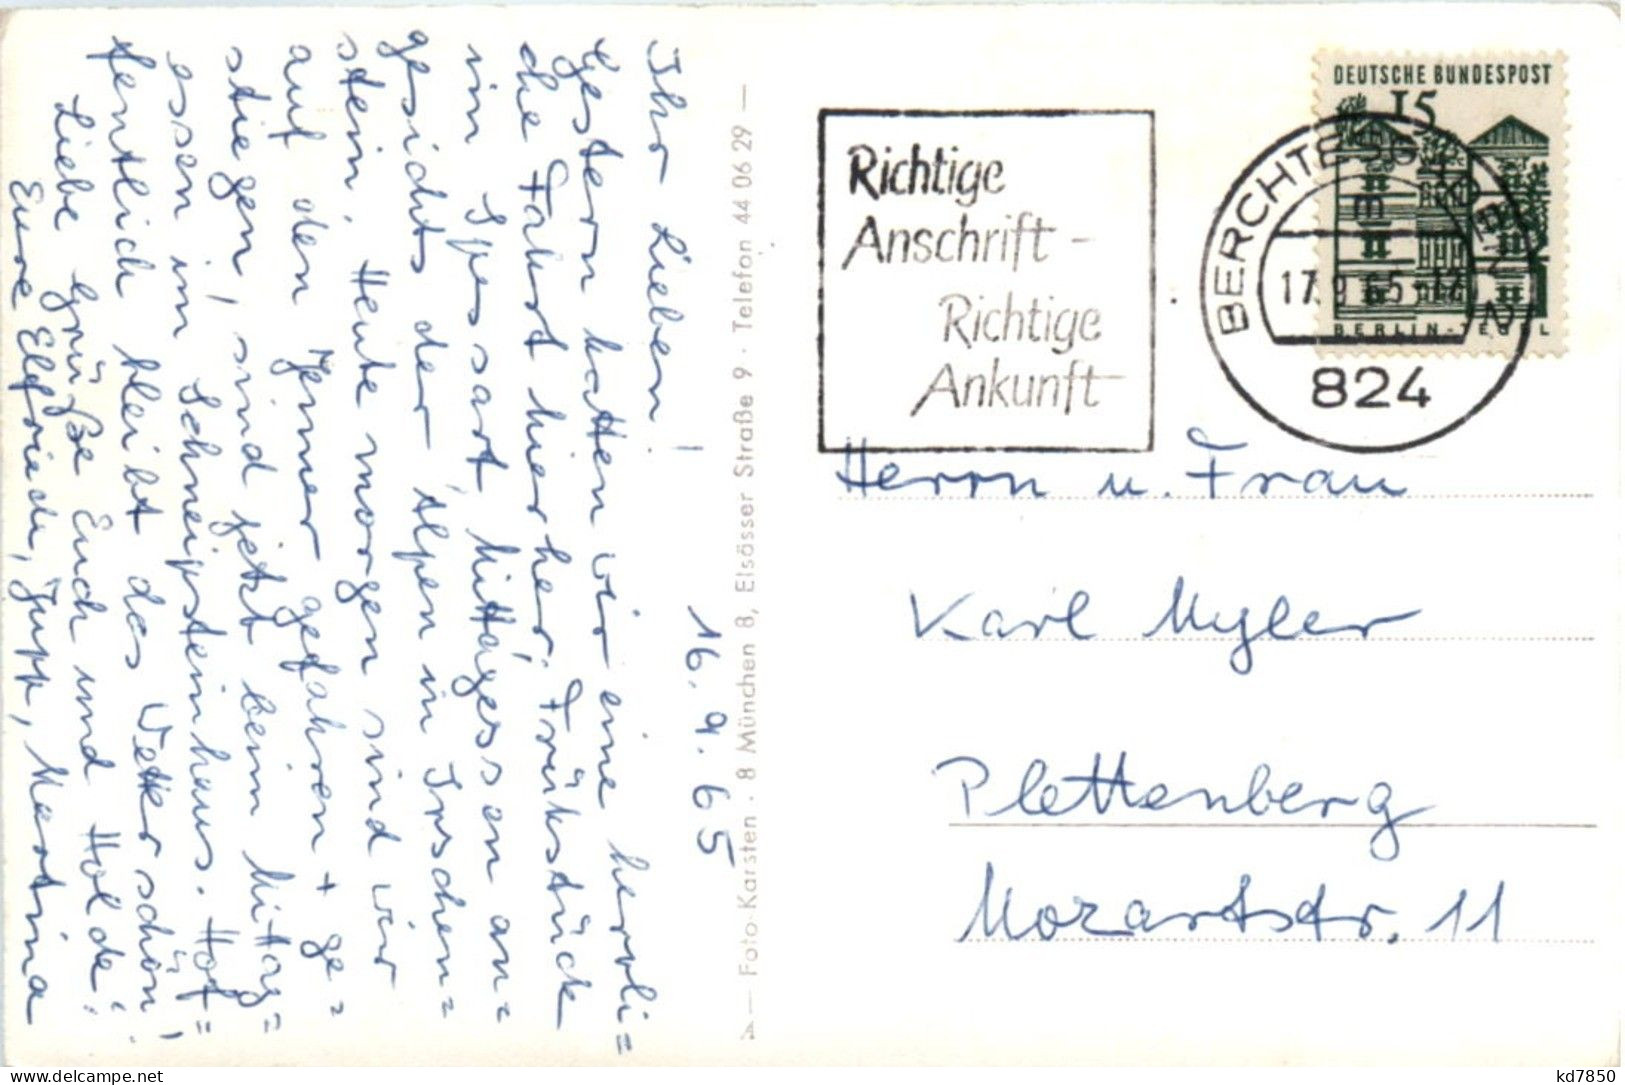 16. 9. 65
Ihr Lieben!
Gestern hatten wir eine herrli=
che Fahrt hierher, Frühstück
im Spessart, Mittagessen an=
gesichts der Alpen in Irschen=
stein. Heute morgen sind wir
auf den Jenner gefahren + ge=
stiegen, sind jetzt beim Mittag=
essen im Schneipsteinhaus. Hof=
fentlich bleibt das Wetter schön!
Liebe Grüße Euch und Holde!
Eure Elfriede, Jupp, Martina
A — Foto-Karsten · 8 München 8, Elsässer Straße 9 · Telefon 44 06 29 —
Richtige
Anschrift -
Richtige
Ankunft
DEUTSCHE BUNDESPOST
15
BERLIN-TEGEL
BERCHTESGADEN 2
m
17.9.65-17
824
Herrn u. Frau
Karl Myler
Plettenberg
Mozartstr. 11
https://www.delcampe.net
kd7850